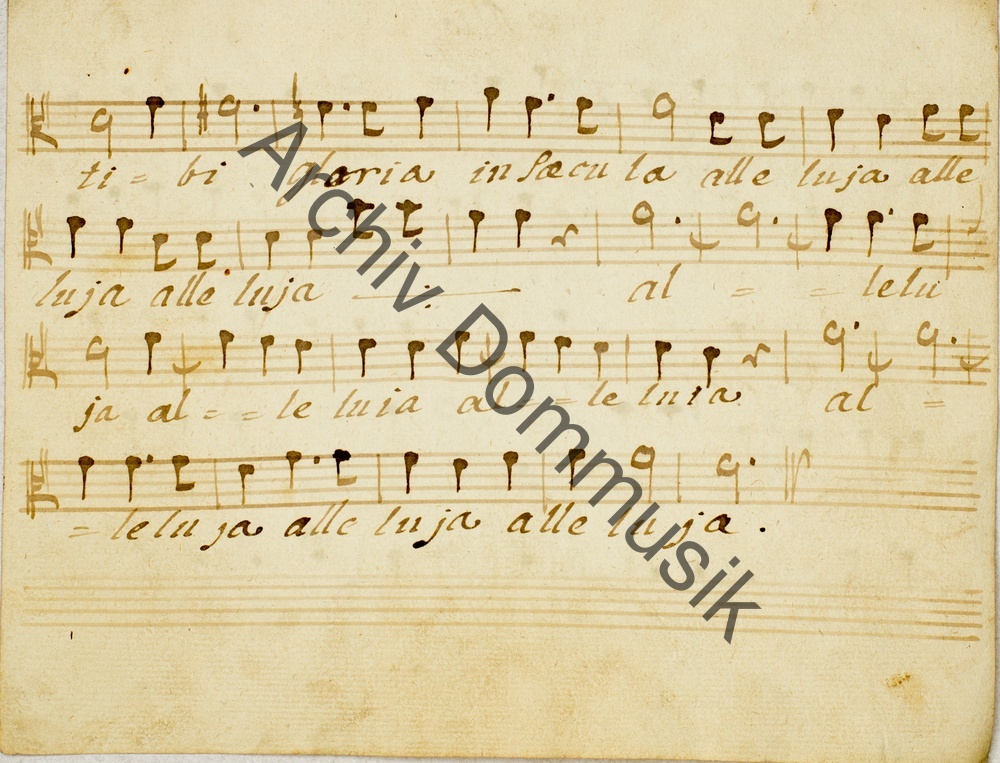 ti = bi gloria in sæcula alle luja alle
luja alle luja al = = lelu
ja al = = le luia al = = le luia al =
= lelu ja alle luja alle luja .
Archiv Dommusik